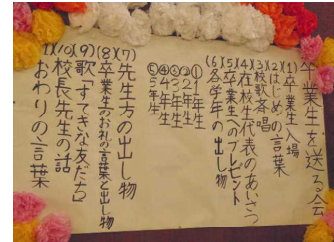 卒業生を送る会
(1)卒業生入場
(2)はじめの言葉
(3)校歌斉唱
(4)在校生代表のあいさつ
(5)卒業生へのプレゼント
(6)各学年の出し物
①1年生
②2年生
③3年生
④4年生
⑤5年生
(7)先生方の出し物
(8)卒業生のお礼の言葉と出し物
(9)歌「すてきな友だち」
(10)校長先生の話
(11)おわりの言葉